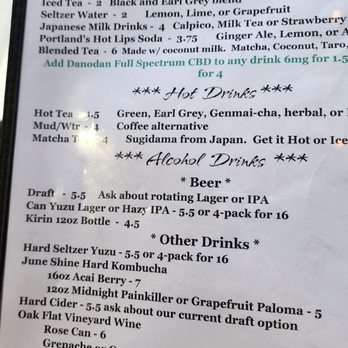 Iced Tea - 2 Black and Earl Grey Blend
Seltzer Water - 2 Lemon, Lime, or Grapefruit
Japanese Milk Drinks - 4 Calpico, Milk Tea or Strawberry
Portland's Hot Lips Soda - 3.75 Ginger Ale, Lemon, or A
Blended Tea - 6 Made w/ coconut milk. Matcha, Coconut, Taro,
Add Danodan Full Spectrum CBD to any drink 6mg for 1.5
for 4
*** Hot Drinks ***
Hot Tea 1.5 Green, Earl Grey, Genmai-cha, herbal, or
Mud/Wtr - 4 Coffee alternative
Matcha 4 Sugidama from Japan. Get it Hot or Iced
*** Alcohol Drinks ***
* Beer *
Draft - 5.5 Ask about rotating Lager or IPA
Can Yuzu Lager or Hazy IPA - 5.5 or 4-pack for 16
Kirin 12oz Bottle - 4.5
* Other Drinks *
Hard Seltzer Yuzu - 5.5 or 4-pack for 16
June Shine Hard Kombucha
16oz Acai Berry - 7
12oz Midnight Painkiller or Grapefruit Paloma - 5
Hard Cider - 5.5 ask about our current draft option
Oak Flat Vineyard Wine
Rose Can - 6
Grenache or